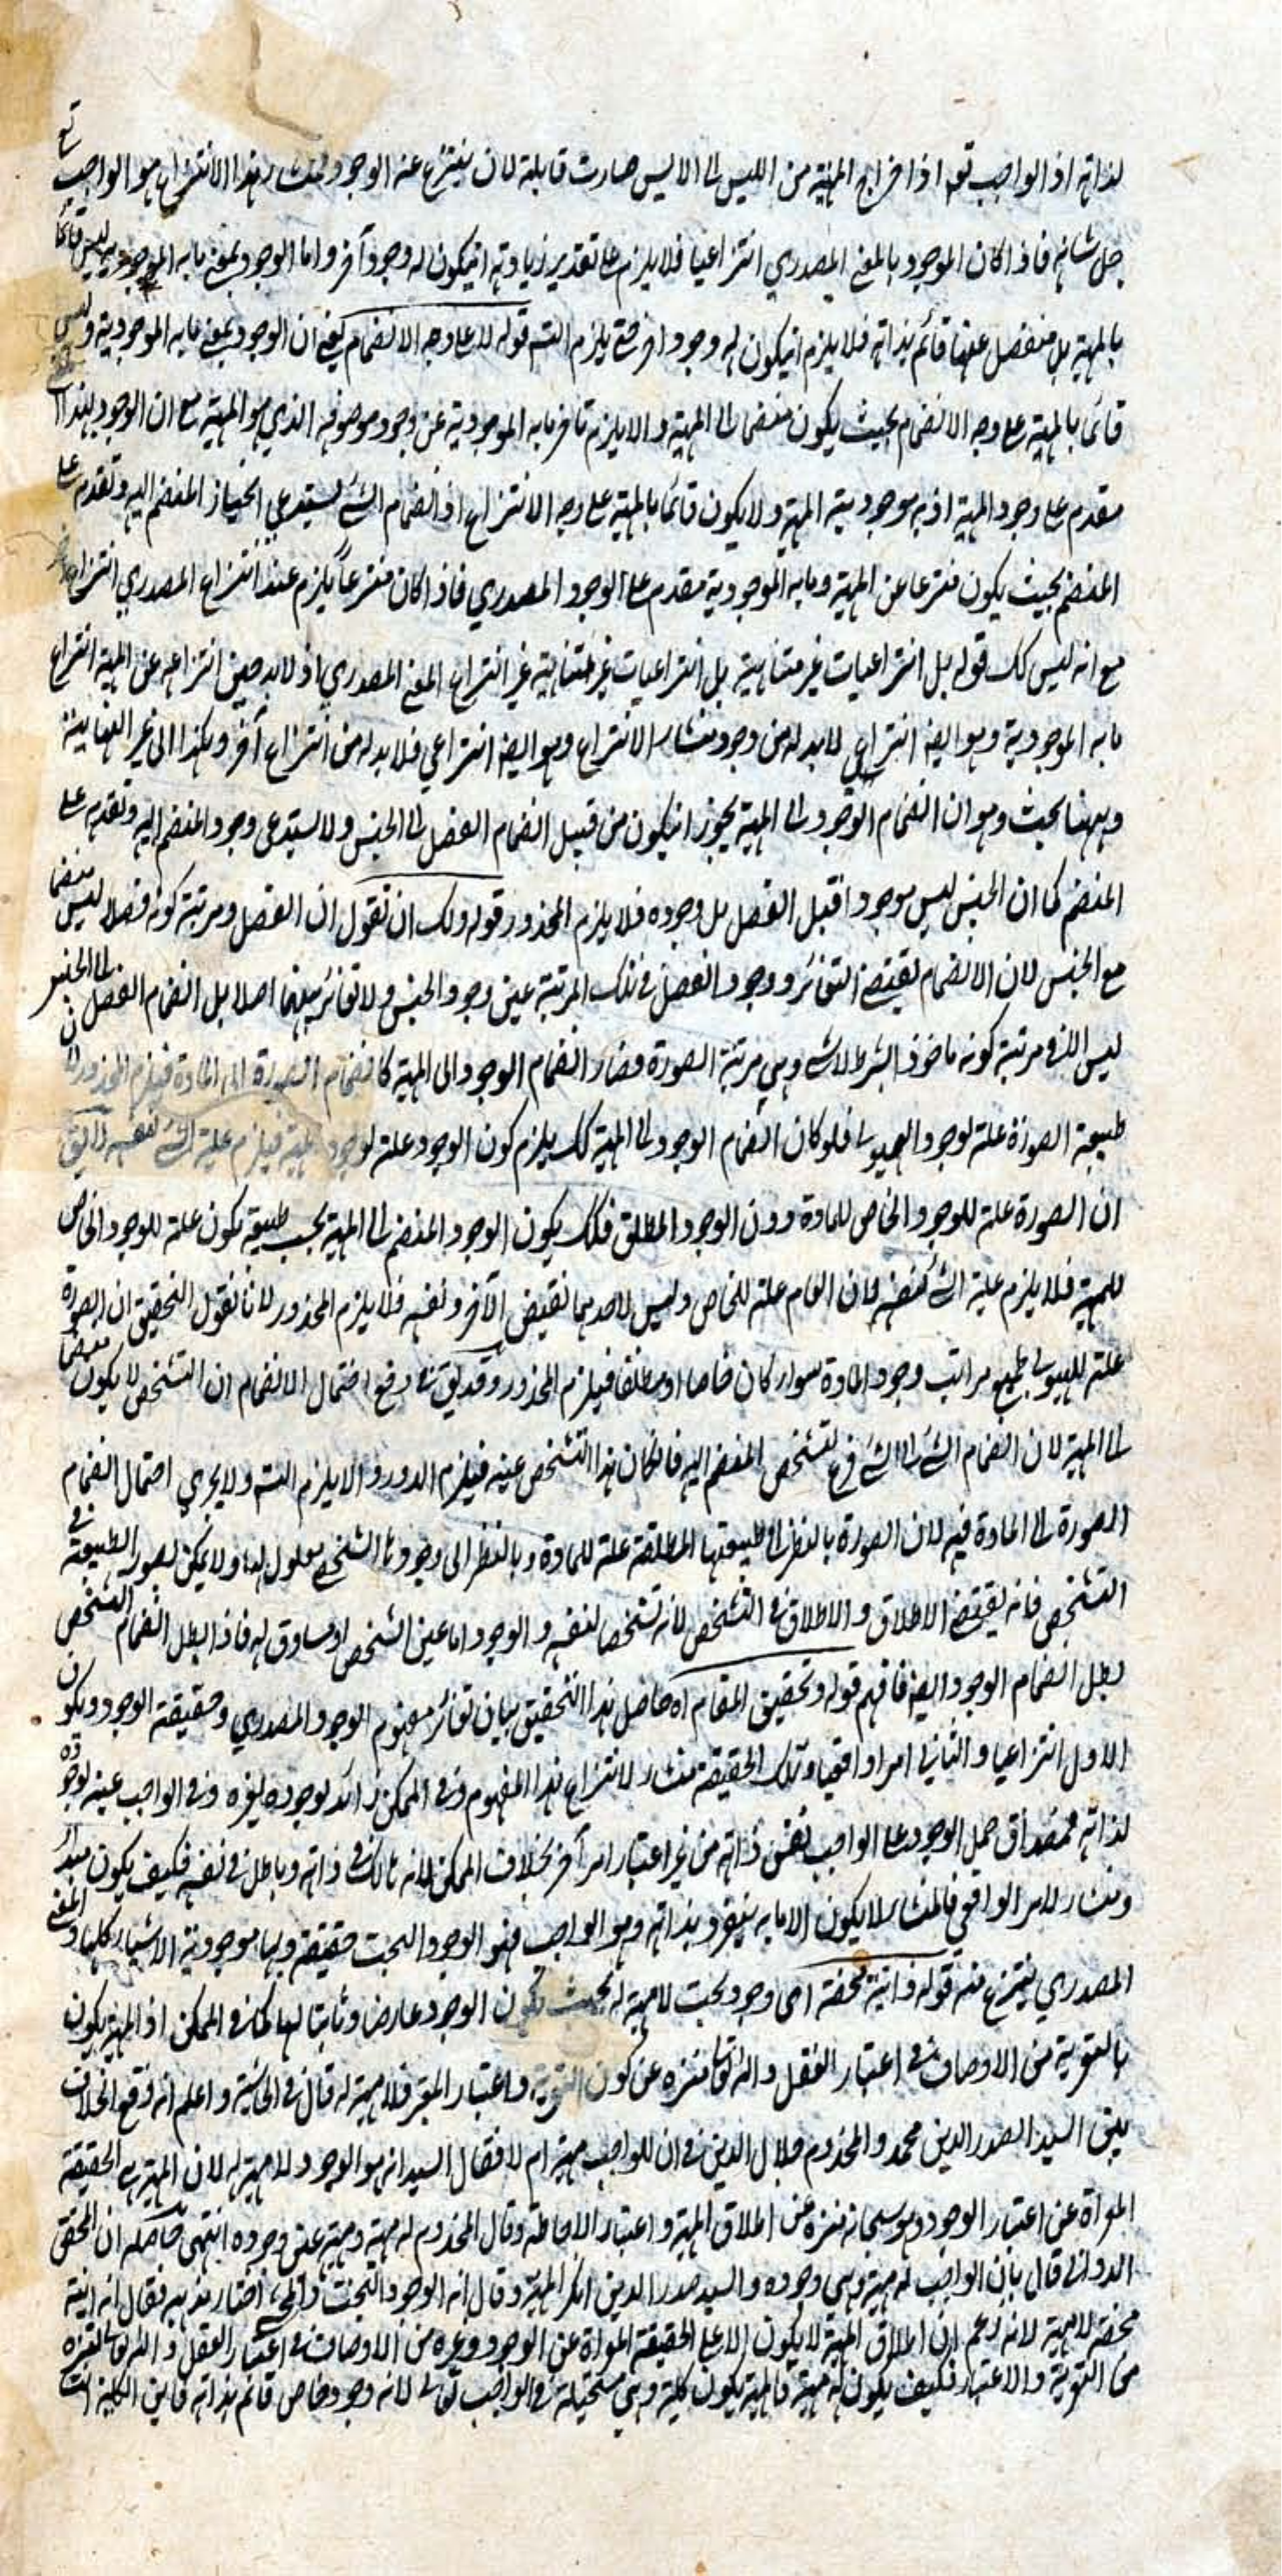 لذاته اذ الواجب تعه اذا اخراج المهية من الليس الى الايس صارت قابلة لان ينتزع عنه الوجود ومنشاء هذا الانتزاع هو الواجب تع
جل شانه فاذا كان الموجود بالمعنى المصدري انتزاعيا فلا يلزم على تقدير زيادته انيكون له وجود آخر واما الوجود بمعنى ما به الموجودية ليس قائما
بالمهية بل منفصل عنها قائم بذاته فلا يلزم انيكون له وجود اخر حتى يلزم التسم قوله لا على وجه الانضمام يعني ان الوجود بمعنى ما به الموجودية وليس
قائما بالمهية على وجه الانضمام بحيث يكون منضما الى المهية والا يلزم تاخر ما به الموجودية عن وجود موصوفه الذي هو المهية مع ان الوجود بهذا
مقدم على وجود المهية اذ به موجودية المهية ولا يكون قائما بالمهية على وجه الانتزاع اذ انضمام الشئ يستدعي انحياز المنضم اليه وتقدم على
المنضم بحيث يكون منتزعا عن المهية وما به الموجودية مقدم على الوجود المصدري فاذا كان منتزعا يلزم عند انتزاع المصدري انتزاع
مع انه ليس كك قوله بل انتزاعيات غير متناهية بل انتزاعيات غير متناهية غير انتزاع المعنى المصدري اذ لابد حين انتزاعه عن المهية انتزاع
ما به الموجودية وهو ايضا انتزاعي لابد له من وجود منشاء الانتزاع وهو ايضا انتزاعي فلابد له من انتزاع آخر وهكذا الى غير النهاية
وههنا بحث وهو ان انضمام الوجود الى المهية يجوز انيكون من قبيل انضمام الفصل الى الجنس ولا يستدعي وجود المنضم اليه وتقدمه على
المنضم كما ان الجنس ليس موجودا قبل الفصل بل وجوده فلا يلزم المحذور قوله ولك ان تقول ان الفصل ومرتبة كونه فصلا ليس منضما
مع الجنس لان الانضمام يقتضي التغائر ووجود الفصل في تلك المرتبة عين وجود الجنس ولا تغائر بينهما اصلا بل انضمام الفصل الى الجنس
ليس الا في مرتبة كونه ماخوذ البشرط لاشئ وهي مرتبة الصورة فصار انضمام الوجود الى المهية كانضمام الصورة الى المادة فيلزم المحذور لان
طبيعة الصورة علة لوجود الهيولى فلو كان انضمام الوجود الى المهية كك يلزم كون الوجود علة لوجود المهية فيلزم علية الشئ لنفسه لايق
ان الصورة علة للوجود الخاص للمادة دون الوجود المطلق فكك يكون الوجود المنضم الى المهية بحسب طبيعته يكون علة للوجود الخاص
للمهية فلا يلزم علية الشئ لنفسه لان العام علة للخاص وليس لاحدهما نقيض الآخر ونفسه فلا يلزم المحذور لانا نقول التحقيق ان الصورة
علة للهيولى بجميع مراتب وجود المادة سواء كان خاصا او مطلقا فيلزم المحذور وقد يق في دفع احتمال الانضمام ان التشخص لا يكون منضما
الى المهية لان انضمام الشئ الى الشئ فرع تشخص المنضم اليه فانكان هذا التشخص عينه فيلزم الدور والا يلزم التسه ولا يجري احتمال انضمام
الصورة الى المادة فيه لان الصورة بالنظر الى طبيعتها المطلقة علة للمادة وبالنظر الى وجودها الشخصي معلول لها ولا يمكن تصور الطبيعة في
التشخص فانه يقتضي الاطلاق والاطلاق في التشخص لانه تشخص لنفسه والوجود اما عين الشخص او مساوق له فاذا بطل انضمام التشخص
بطل انضمام الوجود ايضا فافهم قوله وتحقيق المقام اه حاصل هذا التحقيق بيان تغائر مفهوم الوجود المصدري وحقيقة الوجود ويكون
الاول انتزاعيا والثاني امرا واقعيا وتلك الحقيقة منشاء لانتزاع هذا المفهوم وفي الممكن زائد لوجوده لغيره وفي الواجب عينه لوجوده
لذاته فمصداق حمل الوجود على الواجب نفس ذاته من غير اعتبار امر آخر بخلاف الممكن لانه هالك في ذاته وباطل في نفسه فكيف يكون مبدأ
ومنشاء لامر الواقعي فالمنشاء لا يكون الا ما به يتقرر وبذاته وهو الواجب فهو الوجود البحت حقيقة وبها موجودية الاشياء كلها والمعنى
المصدري ينتزع منه قوله وانية محضة اى وجود بحت لا مهية له بحيث يكون الوجود عارضا وثابتا لها كما في الممكن اذ المهية يكون
بالتعرية من الاوصاف في اعتبار العقل والله تعالى منزه عن كون التعرية واعتبار المعتبر فلا مهية له قال في الحاشية واعلم انه وقع الخلاف
بين السيد الصدر الدين محمد والمخدوم جلال الدين في ان للواجب مهية ام لا فقال السيد انه هو الوجود ولا مهية له لان المهية هي الحقيقة
المعراة عن اعتبار الوجود وهو سبحانه منزه عن اطلاق المهية واعتبار الاحاطة وقال المخدوم له مهية ومهية عين وجوده انتهى حاصله ان المحقق
الدواني قال بان الواجب له مهية وهي وجوده والسيد صدر الدين انكر المهية وقال انه الوجود البحت والمحشي اختار مذهبه فقال انه انية
محضة لا مهية لانه زعم ان اطلاق المهية لا يكون الا على الحقيقة المعراة عن الوجود وغيره من الاوصاف في اعتبار العقل والله تعالى لتنزه
من التعرية والاعتبار فكيف يكون له مهية فالمهية يكون كلية وهي مستحيلة في الواجب تعالى لانه وجود خاص قائم بذاته فاين الكلية انت